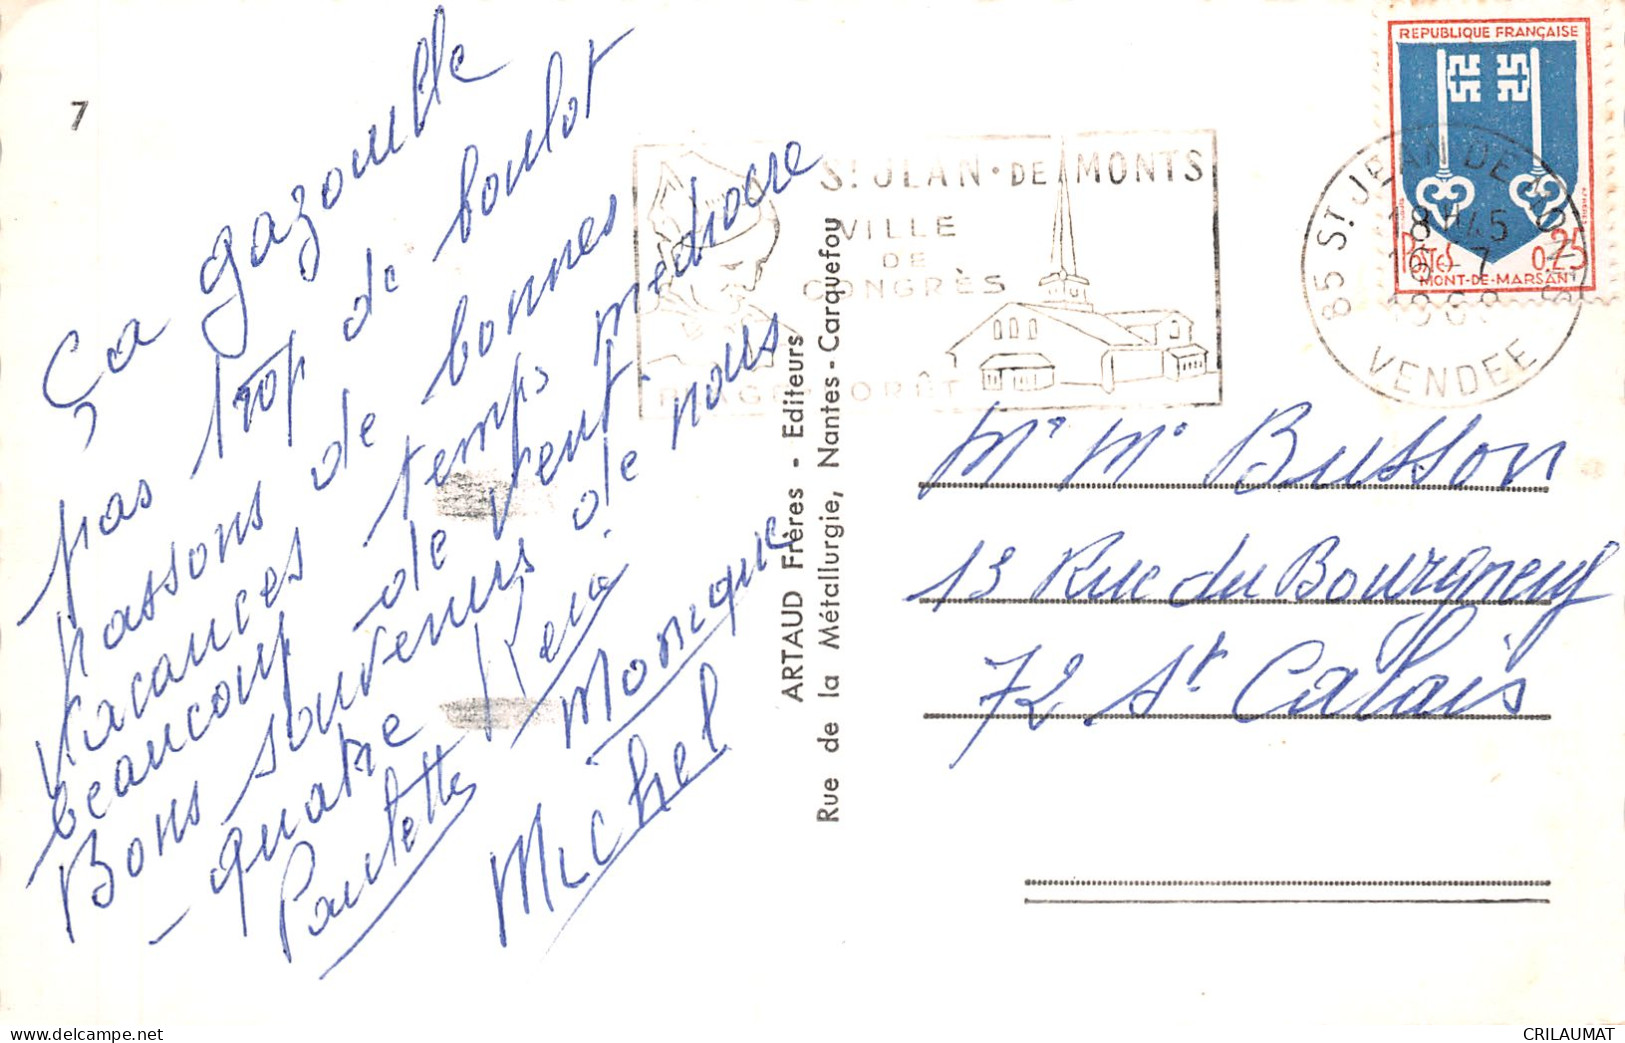 7
Ça gazouille
pas trop de boulot
passons de bonnes
vacances temps médiocre
beaucoup de vent.
Bons souvenirs de nous
quatre
Paulette René
Monique
Michel
ARTAUD Frères - Editeurs
Rue de la Métallurgie, Nantes - Carquefou
ST JEAN·DE MONTS
VILLE
DE
CONGRÈS
85 ST JEAN DE MONTS
18H45
16-7
VENDEE
REPUBLIQUE FRANÇAISE
POSTES 0,25
MONT-DE-MARSAN
Mr Me Busson
13 Rue du Bourgneuf
72 St Calais
www.delcampe.net
CRILAUMAT